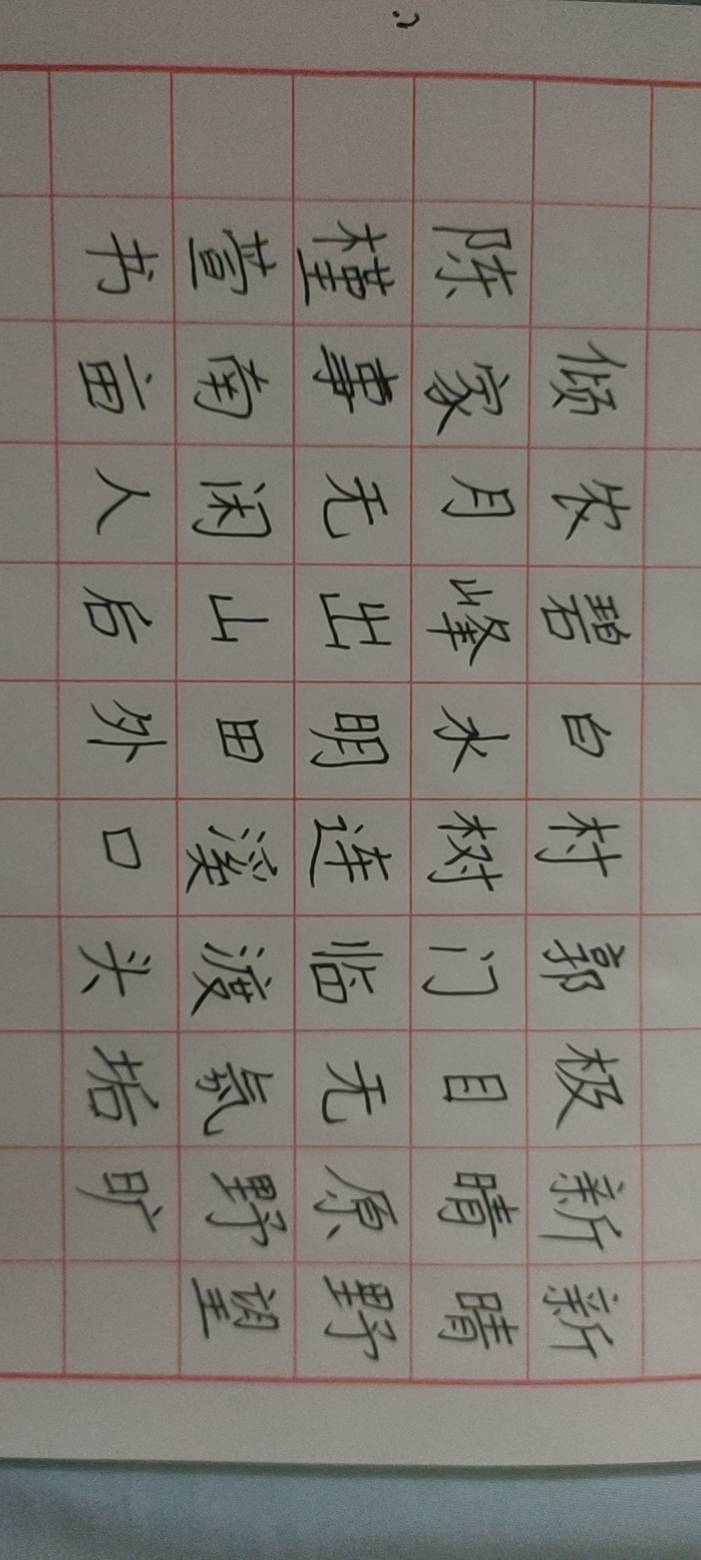 新晴野望
新晴原野旷
极目无氛垢
郭门临渡头
村树连溪口
白水明田外
碧峰出山后
农月无闲人
倾家事南亩
陈槿萱书